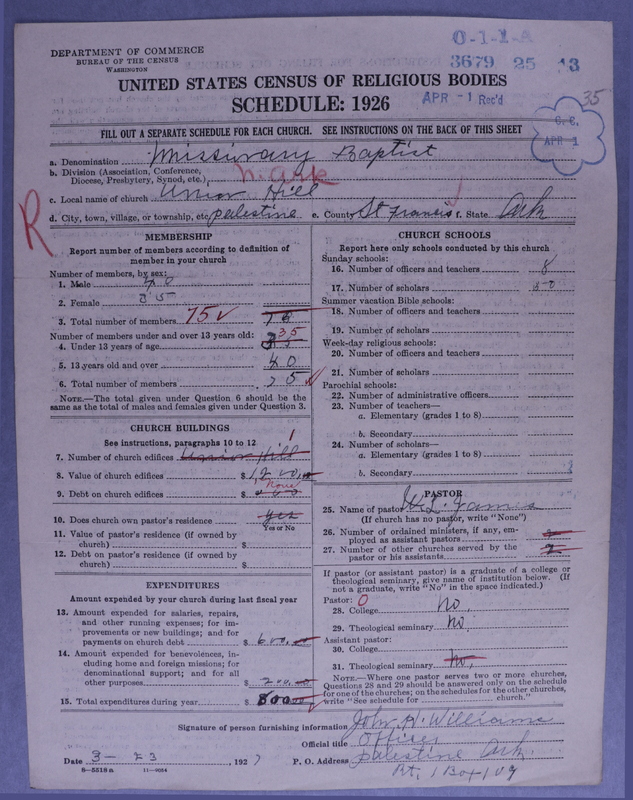 DEPARTMENT OF COMMERCE
BUREAU OF THE CENSUS
WASHINGTON
0-1-1-A
3679 25 13
UNITED STATES CENSUS OF RELIGIOUS BODIES
SCHEDULE: 1926
APR -1 Rec'd
35
C. E.
APR 1
FILL OUT A SEPARATE SCHEDULE FOR EACH CHURCH. SEE INSTRUCTIONS ON THE BACK OF THIS SHEET
a. Denomination Missionary Baptist
b. Division (Association, Conference,
Diocese, Presbytery, Synod, etc.) N. Ark
c. Local name of church Union Hill
d. City, town, village, or township, etc. Palestine e. County St Francis f. State Ark
R
MEMBERSHIP
Report number of members according to definition of
member in your church
Number of members, by sex:
1. Male 40
2. Female 35
3. Total number of members 75
Number of members under and over 13 years old:
4. Under 13 years of age 35
5. 13 years old and over 40
6. Total number of members 75
NOTE.—The total given under Question 6 should be the
same as the total of males and females given under Question 3.
CHURCH BUILDINGS
See instructions, paragraphs 10 to 12
1
7. Number of church edifices Union Hill
8. Value of church edifices $ 1,200.00
None
9. Debt on church edifices $
10. Does church own pastor's residence yes
Yes or No
11. Value of pastor's residence (if owned by
church) $
12. Debt on pastor's residence (if owned by
church) $
EXPENDITURES
Amount expended by your church during last fiscal year
13. Amount expended for salaries, repairs,
and other running expenses; for im-
provements or new buildings; and for
payments on church debt $ 600.00
14. Amount expended for benevolences, in-
cluding home and foreign missions; for
denominational support; and for all
other purposes $ 200.00
15. Total expenditures during year $ 800.00
CHURCH SCHOOLS
Report here only schools conducted by this church
Sunday schools:
16. Number of officers and teachers 8
17. Number of scholars 50
Summer vacation Bible schools:
18. Number of officers and teachers
19. Number of scholars
Week-day religious schools:
20. Number of officers and teachers
21. Number of scholars
Parochial schools:
22. Number of administrative officers
23. Number of teachers—
a. Elementary (grades 1 to 8)
b. Secondary
24. Number of scholars—
a. Elementary (grades 1 to 8)
b. Secondary
PASTOR
25. Name of pastor
(If church has no pastor, write "None")
26. Number of ordained ministers, if any, em-
ployed as assistant pastors
27. Number of other churches served by the
pastor or his assistants 2
If pastor (or assistant pastor) is a graduate of a college or
theological seminary, give name of institution below. (If
not a graduate, write "No" in the space indicated.)
Pastor: 0
28. College No
29. Theological seminary No,
Assistant pastor:
30. College
31. Theological seminary No,
NOTE.—Where one pastor serves two or more churches,
Questions 28 and 29 should be answered only on the schedule
for one of the churches; on the schedules for the other churches,
write "See schedule for church."
Signature of person furnishing information John H. Williams
Official title Officer
Date 3-23, 1927 P. O. Address Palestine Ark.
Rt. 1 Box 109
8-5318a 11-9034